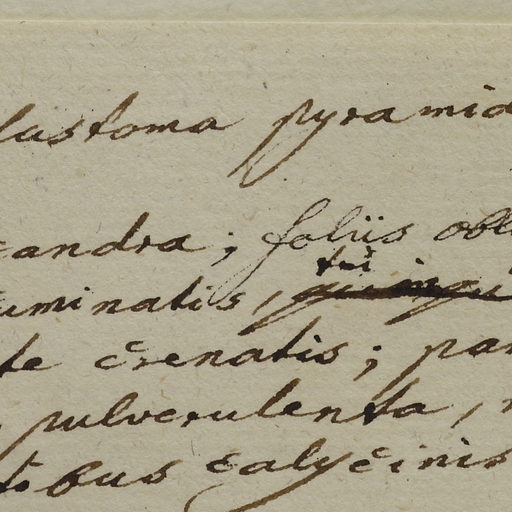 lastoma pyramid
candra; foliis obl
tri
uminatis, quinqu
te crenatis; pan
pulverulenta,
tibus calycinis